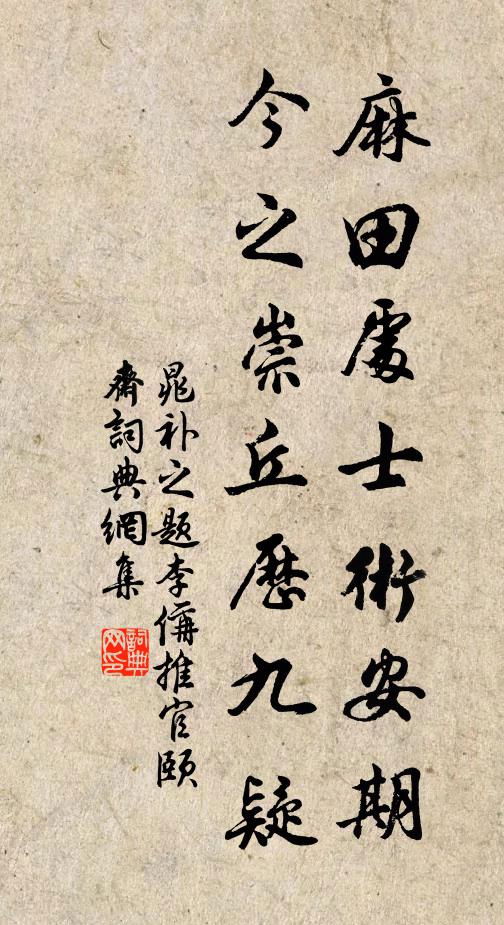 麻田處士術安期
今之崇丘歷九疑
晁补之题李偁推官颐
齋詞典網集
詞典网印